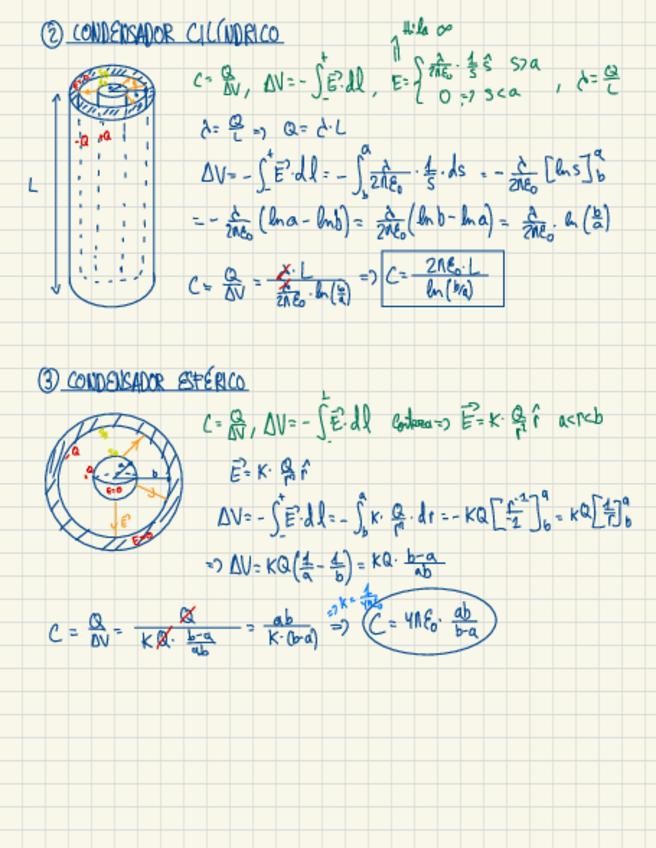 ② CONDENSADOR CILÍNDRICO
Hilo ∞
C = Q/ΔV, ΔV = -∫₋⁺ E⃗·dl, E = { λ/2πε₀ · 1/s ŝ s>a
0 => s<a , λ = Q/L
-Q +Q
L
λ = Q/L => Q = λ·L
ΔV = -∫₋⁺ E⃗·dl = -∫_b^a λ/2πε₀ · 1/s · ds = - λ/2πε₀ [ln s]_b^a
= - λ/2πε₀ (ln a - ln b) = λ/2πε₀ (ln b - ln a) = λ/2πε₀ · ln (b/a)
C = Q/ΔV = λ·L / (λ/2πε₀ · ln(b/a)) => C = 2πε₀·L / ln(b/a)
③ CONDENSADOR ESFÉRICO
C = Q/ΔV, ΔV = -∫₋⁺ E⃗·dl => E⃗ = K· Q/r² r̂ a<r<b
-Q
E=0
b
E⃗
E=0
E⃗ = K· Q/r² r̂
ΔV = -∫₋⁺ E⃗·dl = -∫_b^a K· Q/r² · dr = -KQ [r⁻¹/-1]_b^a = KQ [1/r]_b^a
=> ΔV = KQ (1/a - 1/b) = KQ · b-a/ab
=> K = 1/4πε₀
C = Q/ΔV = Q / (KQ · b-a/ab) = ab / K·(b-a) => C = 4πε₀ · ab/b-a